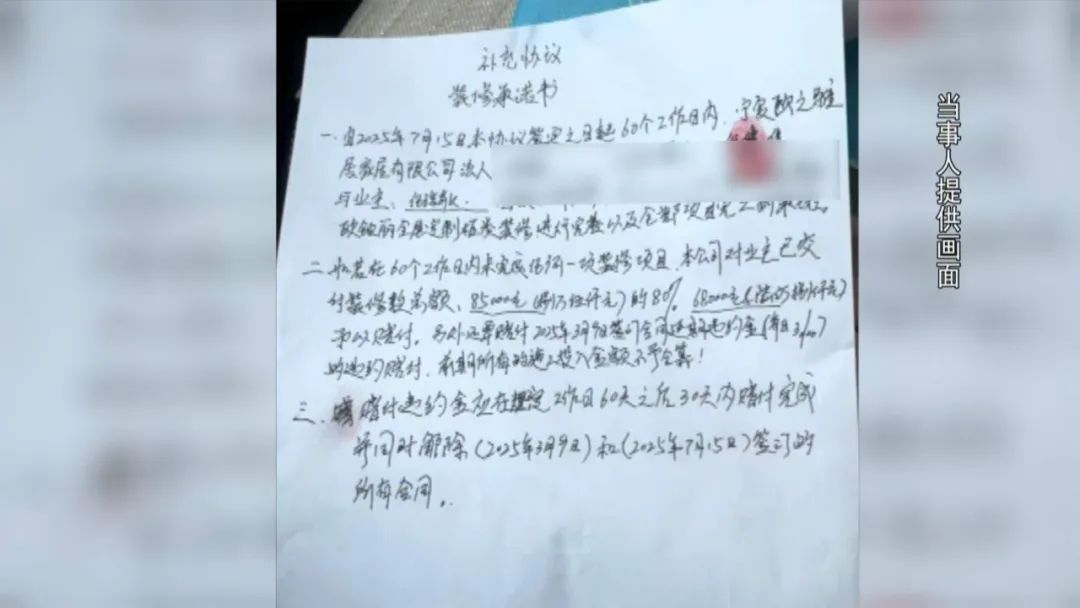 补充协议
装修承诺书
一、自2025年7月15日本协议签定之日起60个工作日内.宁夏欧之雅
居家居有限公司法人
与业主、
欧铂丽全屋定制 装修进行完整以及全部项目完工
二、如若在60个工作日内未完成任何一项装修项目.本公司对业主已交
付装修款总额、85000元(捌万伍仟元)的80%.68000元(陆万捌仟元)
予以赔付.另外还要赔付2025年3月9日签订合同逾期违约金(每日3‰)
的违约赔付.前期所有的施工投入金额不予全算!
三. 赔付违约金应在 工作日60天之后30天内赔付完成
并同时解除(2025年3月9日)和(2025年7月15日)签订的
所有合同.
当事人提供画面